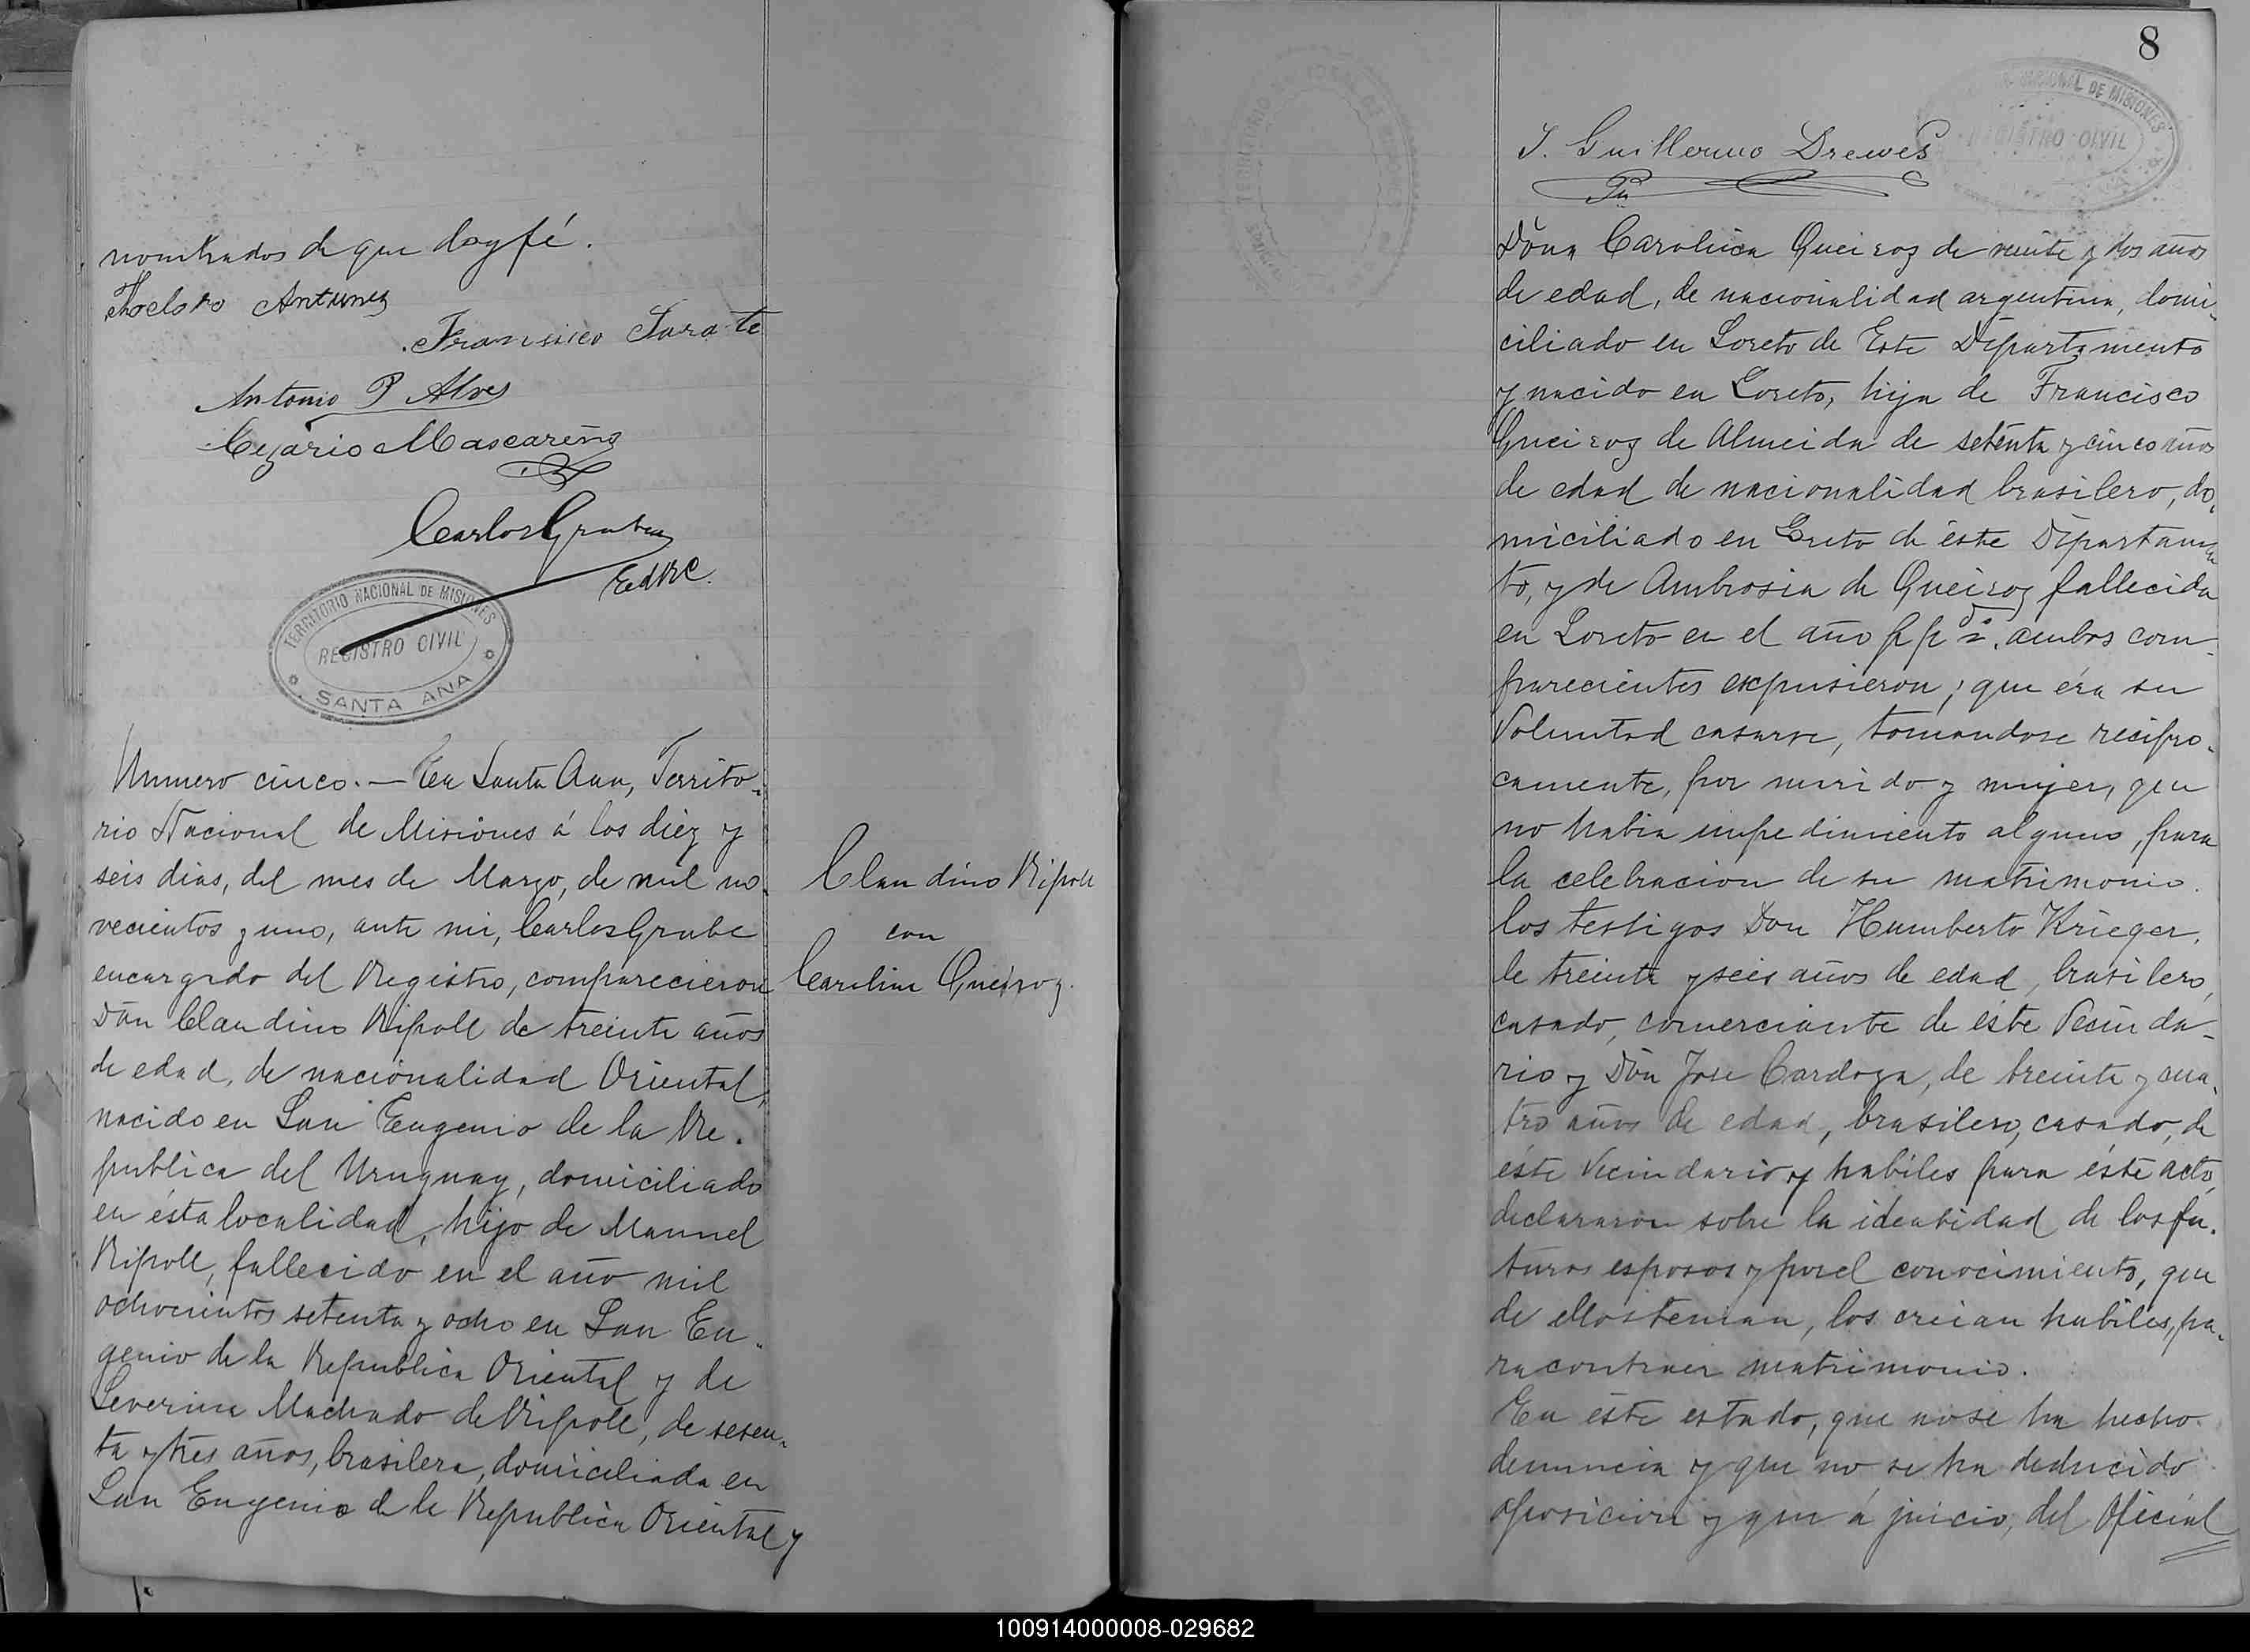 nombrados de que doy fé.
Antunez
Fransisco Sarate
Antonio P Alves
Cezario Mascareñas
Carlos Grube
E d R C.
TERRITORIO NACIONAL DE MISIONES
REGISTRO CIVIL
SANTA ANA
Numero cinco. — En Santa Ana, Territo-
rio Nacional de Misiones á los diéz y
seis dias, del mes de Marzo, de mil no-
vecientos y uno, ante mi, Carlos Grube
encargado del Registro, comparecieron
Dón Claudino Ripoll de treinta años
de edad, de nacionalidad Oriental,
nacido en San Eugenio de la Re-
publica del Uruguay, domiciliado
en ésta localidad, hijo de Manuel
Ripoll, fallecido en el año mil
ochocientos setenta y ocho en San Eu-
genio de la Republica Oriental y de
Severina Machado de Ripoll, de sesen-
ta y tres años, brasilera, domiciliada en
San Eugenio de la Republica Oriental y
Claudino Ripoll
con
Carolina Queiroz.
8
NACIONAL DE MISIONES
REGISTRO CIVIL
J. Guillermo Drewes
Dóna Carolina Queiroz de veinte y dos años
de edad, de nacionalidad argentina, domi-
ciliado en Loreto de Este Departamento
y nacido en Loreto, hija de Francisco
Queiroz de Almeida de seténta y cinco años
de edad de nacionalidad brasilero, do-
miciliado en Loreto de éste Departamen
to, y de Ambrosia de Queiroz fallecida
en Loreto en el año p p do. ambos com-
parecientes expusieron; que éra su
Voluntad casarse, tomandose recipro-
camente, por marido y mujer, que
no habia impedimiento alguno, para
la celebracion de su matrimonio.
los testigos Don Humberto Krieger,
de treinta y seis años de edad, brasilero,
casado, comerciante de éste Vecinda-
rio y Dón Jose Cardoza, de treinta y cua-
tro años de edad, brasilero, casado, de
éste Vecindario y habiles para éste acto,
declararon sobre la identidad de los fu-
turos esposos y por el conocimiento, que
de ellos tenian, los creian habiles, pa-
ra contraer matrimonio.
En éste estado, que no se ha hecho
denuncia y que no se ha deducido
oposicion y que á juicio, del Oficial
100914000008-029682